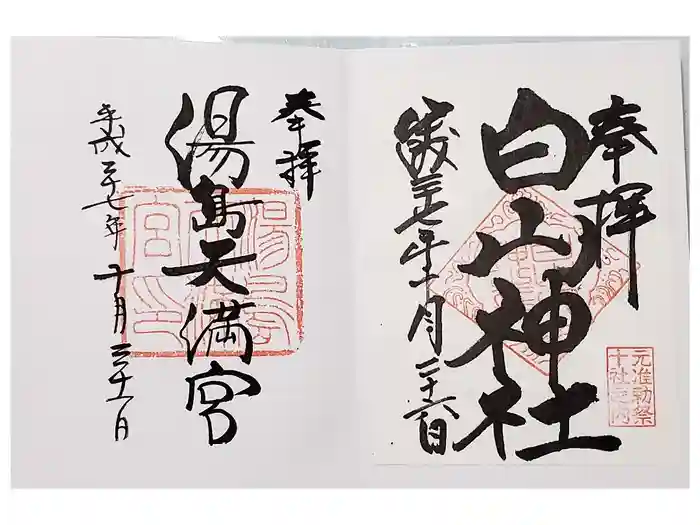 奉拝
白山神社
平成二十七年十月二十六日
元准勅祭
十社之内
奉拝
湯島天満宮
平成二十七年 十月三十一日